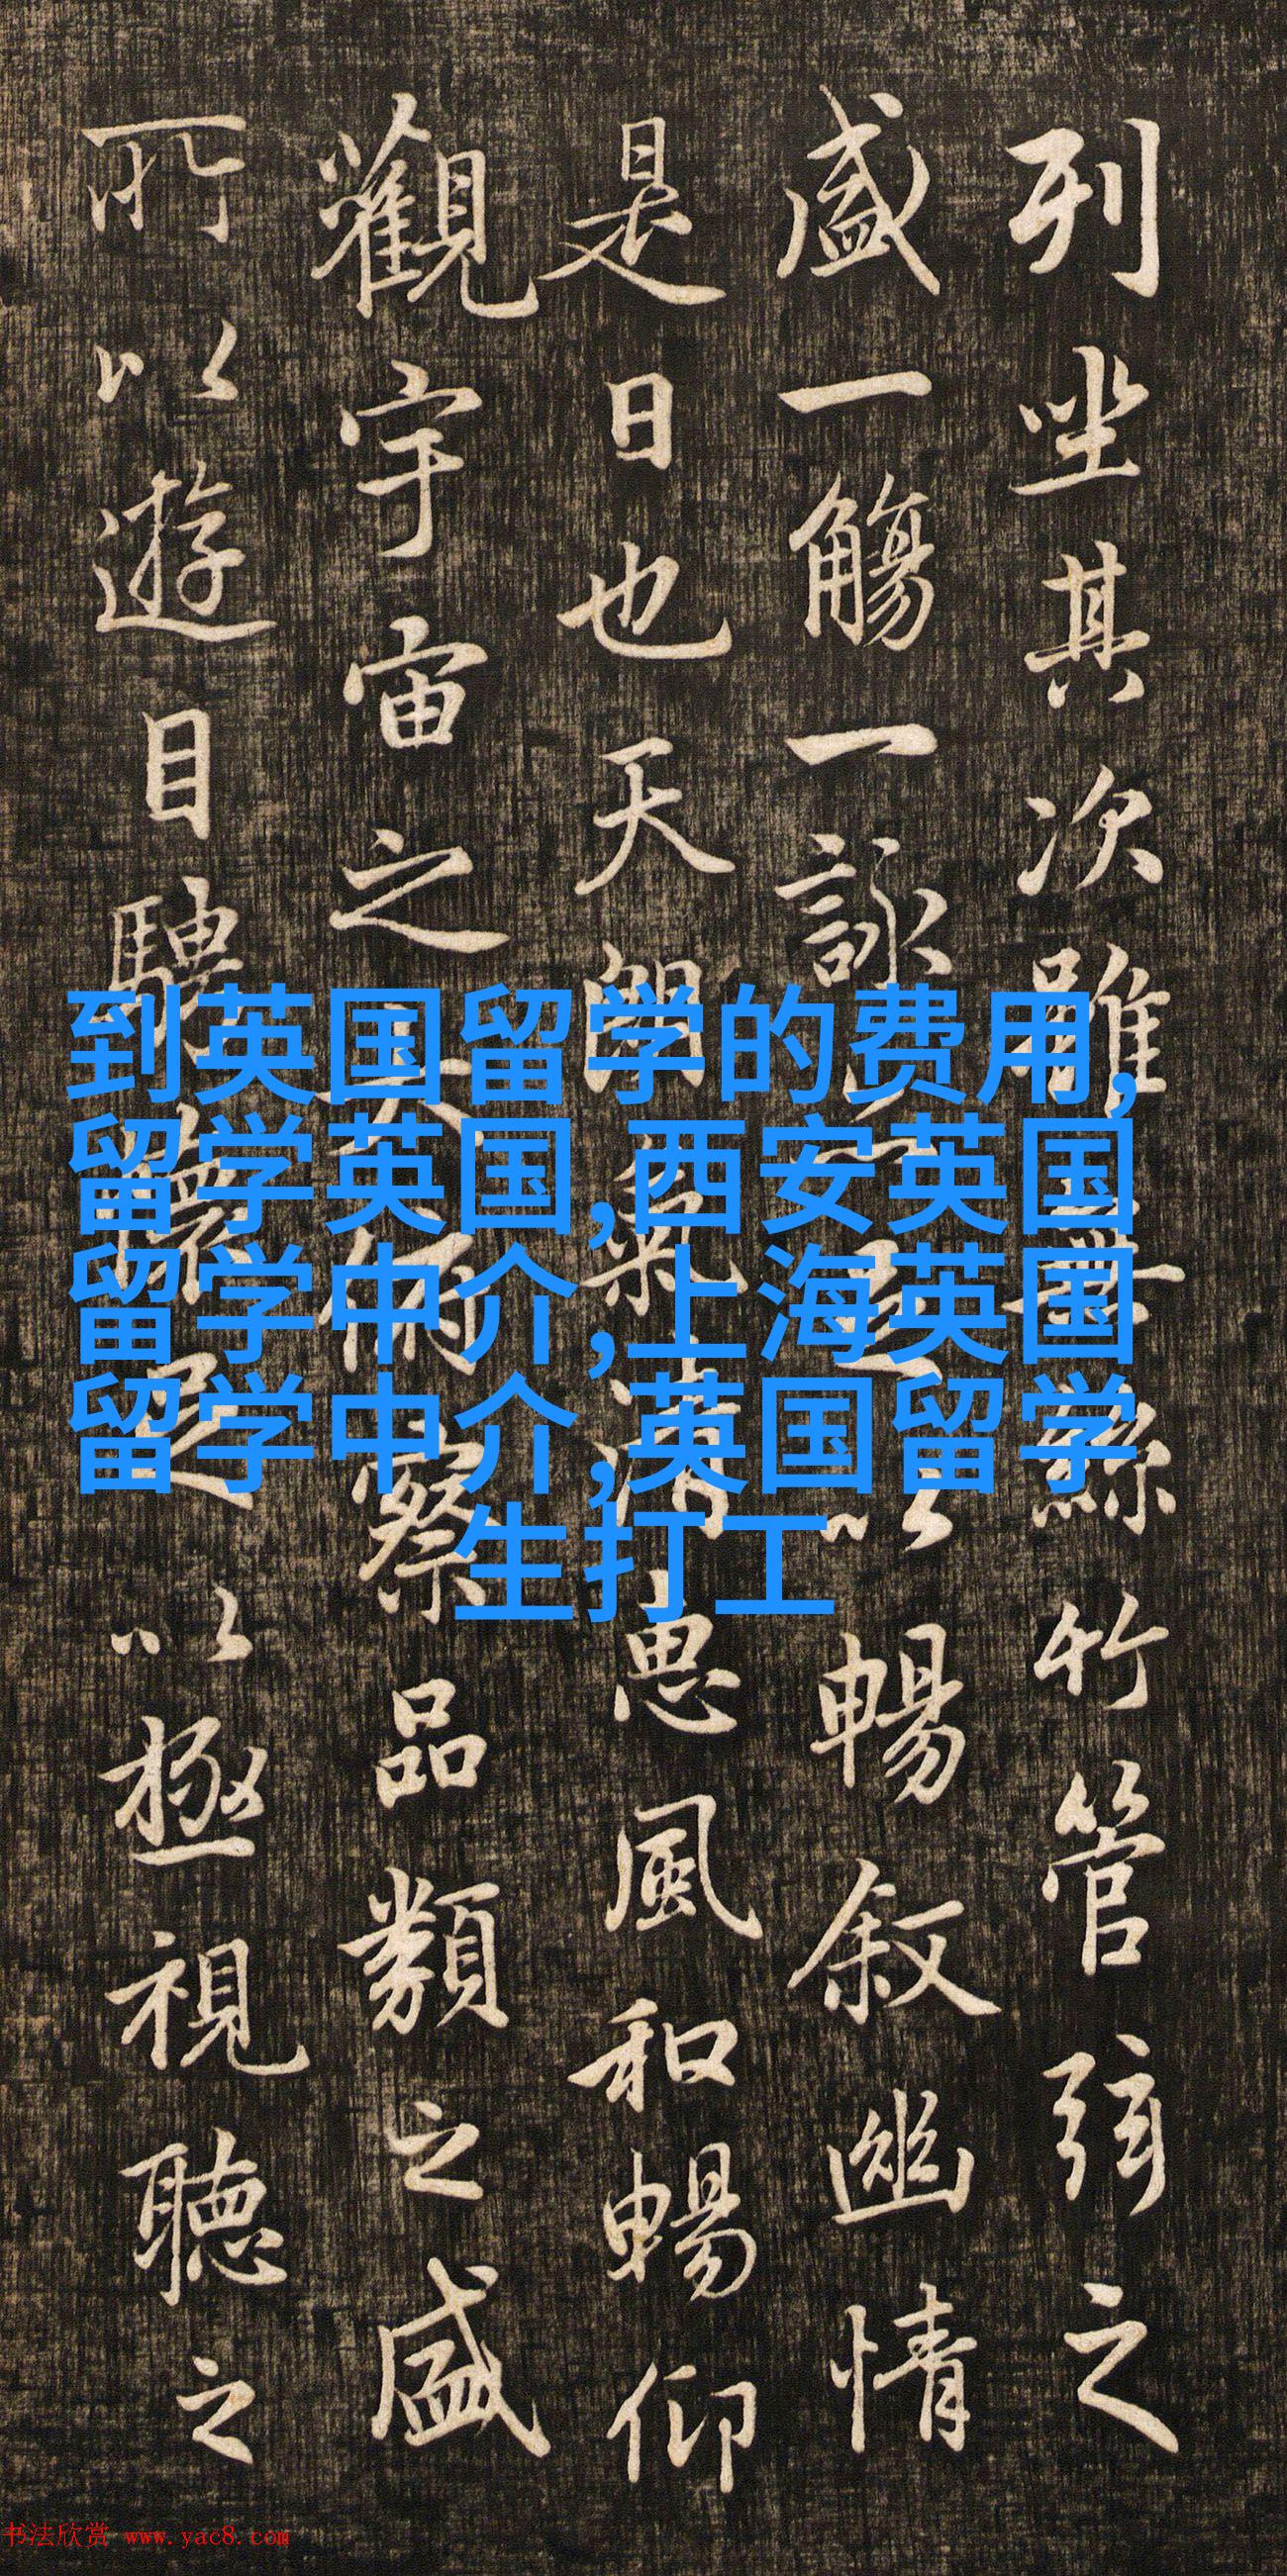 列坐其次雖無絲竹管弦之
盛一觴一詠亦足以暢叙幽情
是日也天朗氣清惠風和暢仰
觀宇宙之大俯察品類之盛
所以遊目騁懷足以極視聽之
到英国留学的费用,
留学英国,西安英国
留学中介,上海英国
留学中介,英国留学
生打工
书法欣赏 www.yac8.com